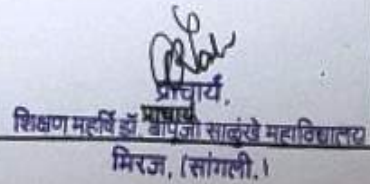 प्राचार्य,
प्राचार्य
शिक्षण महर्षि डॉ. बापूजी साळुंखे महाविद्यालय
मिरज, (सांगली.)